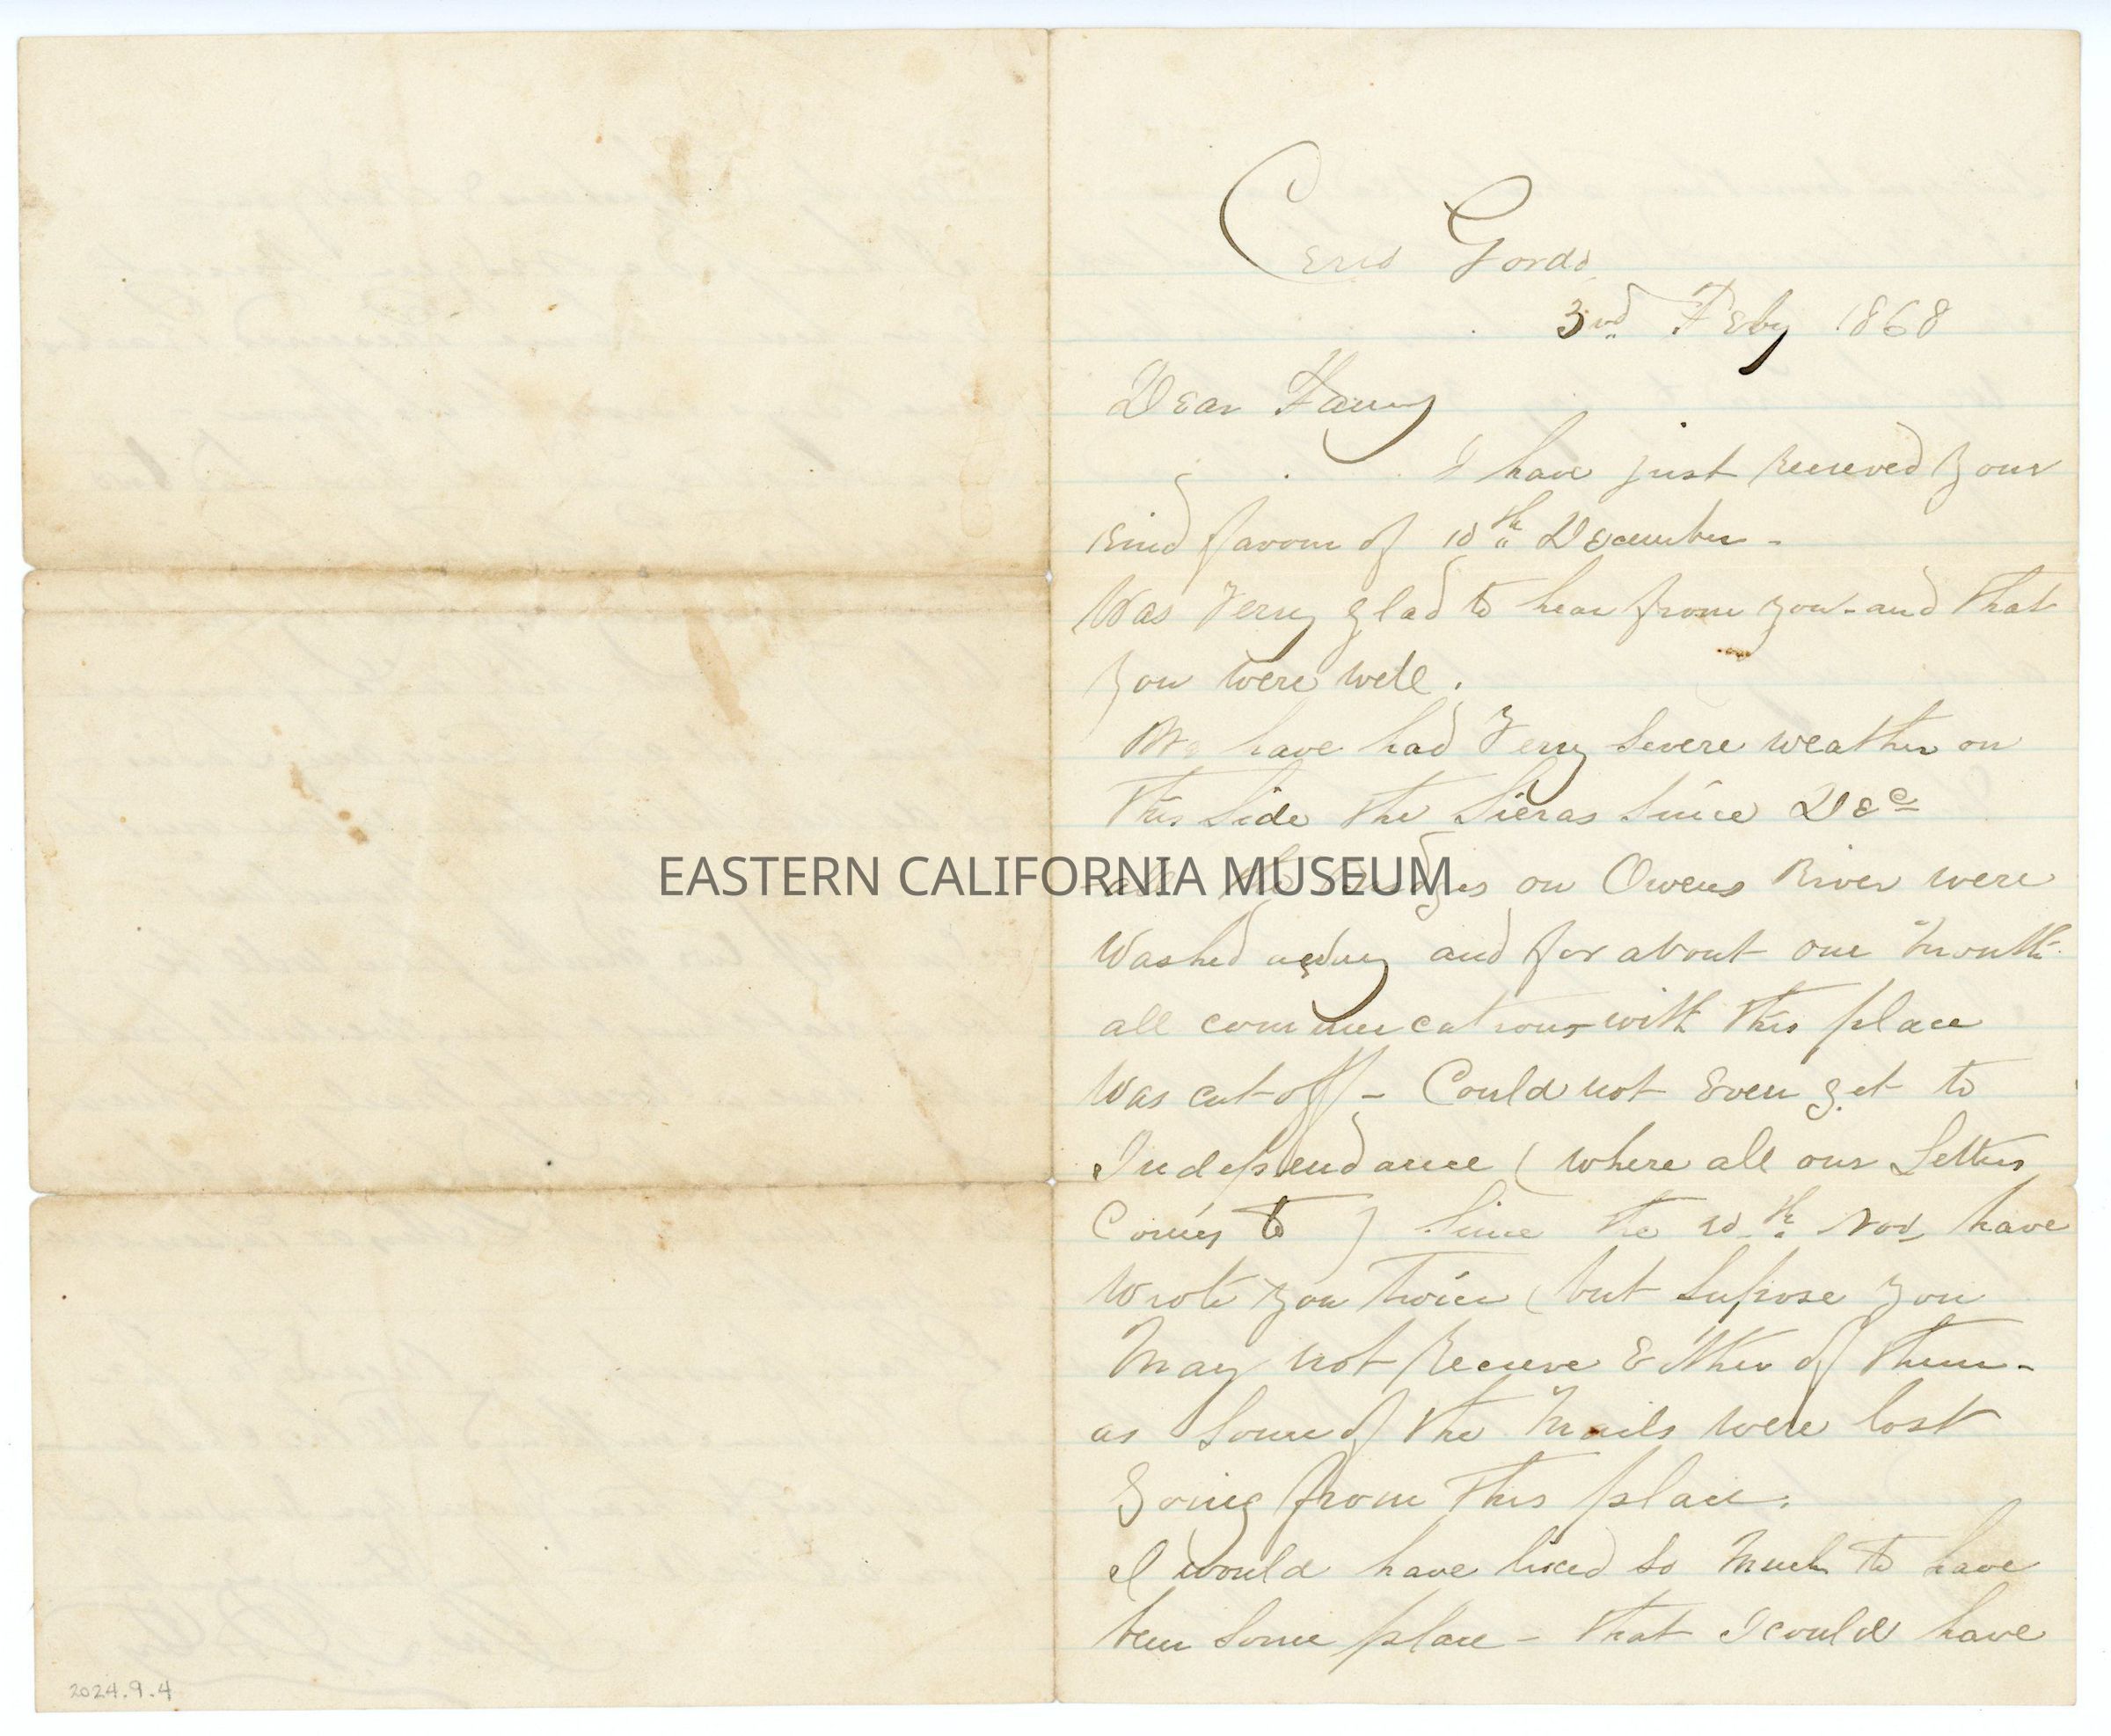 Cerro Gordo
3rd Feby 1868
Dear Fanny
I have just Recieved your
kind favour of 10th December -
Was Verry glad to hear from you - and that
you were well.
We have had Verry Severe weather on
this Side the Sieras Since Dec
all the bridges on Owens River were
Washed away and for about one month
all communications with this place
Was cut off - Could not Even get to
Independance ( where all our Letters
Comes to ) Since the 10th Nov have
wrote you twice ( but Supose you
May not Recieve Either of them -
as Some of the Mails were lost
going from this place.
I would have liked so much to have
been Some place - that I could have
EASTERN CALIFORNIA MUSEUM
2024.9.4